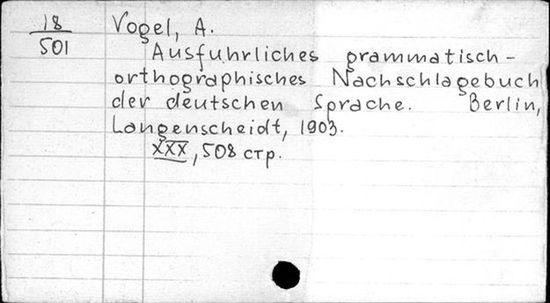 18
501
Vogel, A.
Ausfuhrliches grammatisch-
orthographisches Nachschlagebuch
der deutschen Sprache. Berlin,
Langenscheidt, 1903.
XXX, 508 стр.